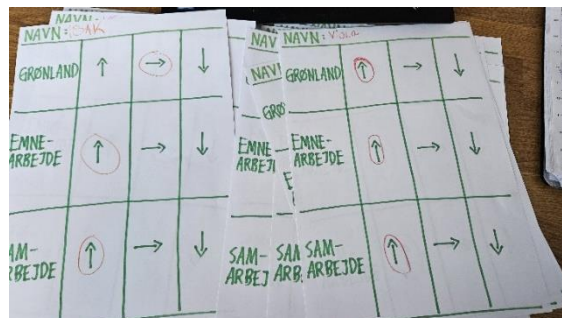 NAVN: ISAK
GRØNLAND ↑ → ↓
EMNE-
ARBEJDE ↑ → ↓
AM-
RBEJDE ↑ → ↓
NAV
NAVI
GRØ
EMNE
ARBEJ
SAM-
ARBEJ
SAM
ARB
NAVN: Viola
GRØNLAND ↑ → ↓
EMNE-
ARBEJDE ↑ → ↓
SAM-
ARBEJDE ↑ → ↓